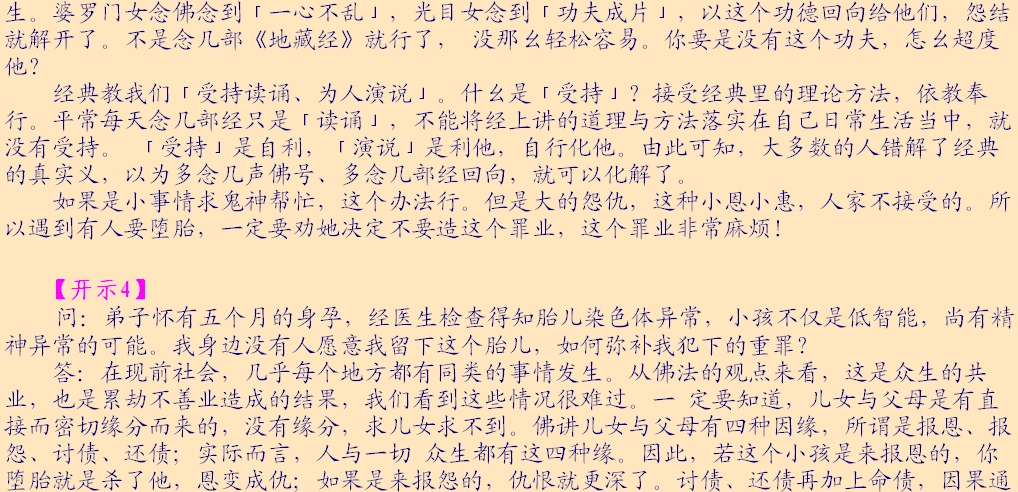 生。婆罗门女念佛念到「一心不乱」，光目女念到「功夫成片」，以这个功德回向给他们，怨结
就解开了。不是念几部《地藏经》就行了， 没那幺轻松容易。你要是没有这个功夫，怎幺超度
他？
经典教我们「受持读诵、为人演说」。什幺是「受持」？接受经典里的理论方法，依教奉
行。平常每天念几部经只是「读诵」，不能将经上讲的道理与方法落实在自己日常生活当中，就
没有受持。 「受持」是自利，「演说」是利他，自行化他。由此可知，大多数的人错解了经典
的真实义，以为多念几声佛号、多念几部经回向，就可以化解了。
如果是小事情求鬼神帮忙，这个办法行。但是大的怨仇，这种小恩小惠，人家不接受的。所
以遇到有人要堕胎，一定要劝她决定不要造这个罪业，这个罪业非常麻烦！
【开示4】
问：弟子怀有五个月的身孕，经医生检查得知胎儿染色体异常，小孩不仅是低智能，尚有精
神异常的可能。我身边没有人愿意我留下这个胎儿，如何弥补我犯下的重罪？
答：在现前社会，几乎每个地方都有同类的事情发生。从佛法的观点来看，这是众生的共
业，也是累劫不善业造成的结果，我们看到这些情况很难过。一 定要知道，儿女与父母是有直
接而密切缘分而来的，没有缘分，求儿女求不到。佛讲儿女与父母有四种因缘，所谓是报恩、报
怨、讨债、还债；实际而言，人与一切 众生都有这四种缘。因此，若这个小孩是来报恩的，你
堕胎就是杀了他，恩变成仇；如果是来报怨的，仇恨就更深了。讨债、还债再加上命债，因果通